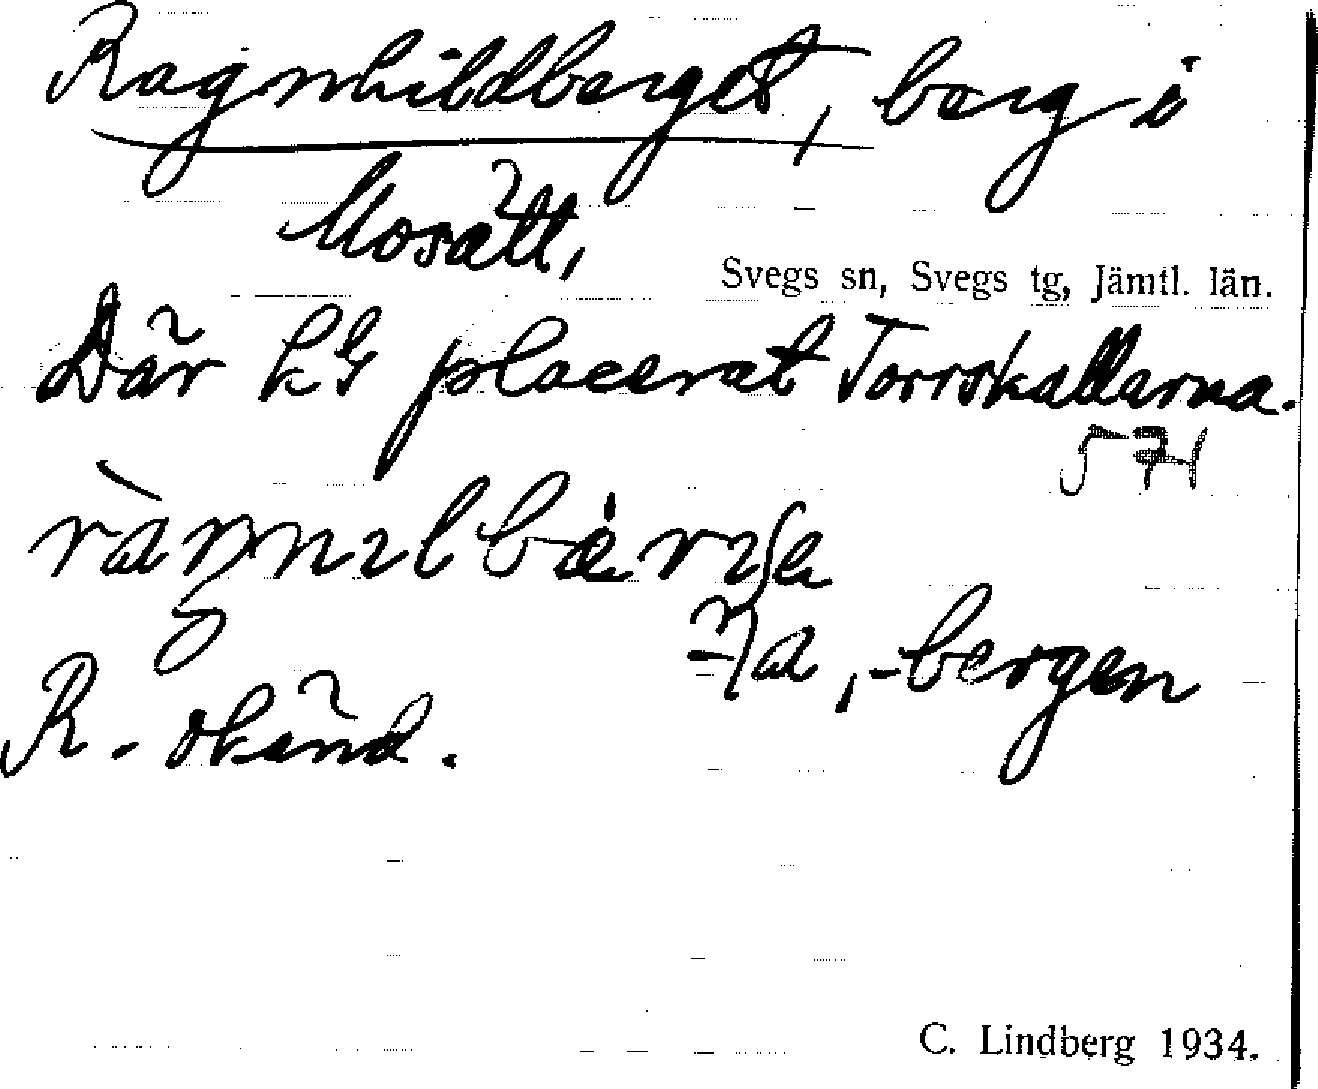 Ragnhildberget, berg i
Mosätt,
Svegs sn, Svegs tg, Jämtl. län.
Där k G placerat Torrskallarna.
571
R. okänd.
-bergen
C. Lindberg 1934.